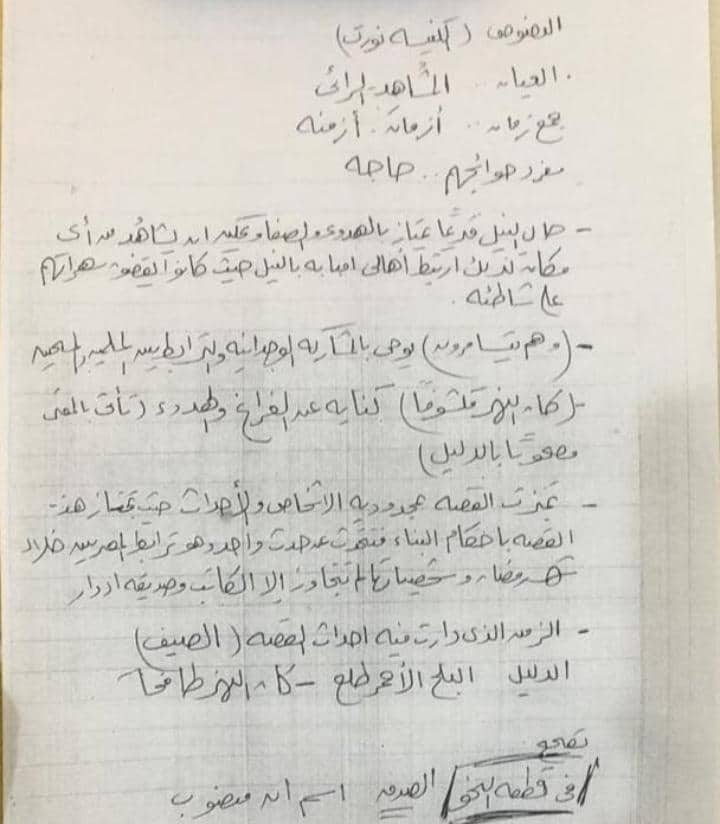 النصوص (كنيسة نورت)
العيان .. المشاهد الرائى
جمع زمان .. أزمان . أزمنه
مفرد حوائجهم .. حاجه
- حال النيل قديمًا يمتاز بالهدوء والصفاء ويمكن ان يشاهد من أى
مكان لذلك ارتبط أهالى امبابه بالنيل حيث كانوا يقضون سهراتهم
على شاطئه .
- (وهم يتسامرون) يوحى بالمشاركه الوجدانيه والترابط بين المسلمين والمسيحين
- (كان النهر مكشوفًا) كنايه عن الفراغ والهدوء (تأتى بالمعنى
مصحوبًا بالدليل)
- تميزت القصه بمحدوديه الاشخاص والأحداث حيث تمتاز هذه
القصه باحكام البناء فتتحدث عن حدث واحد وهو ترابط المصريين خلال
شهر رمضان وشخصياتها لم تتجاوز إلا الكاتب وصديقه ادوار
- الزمن الذى دارت فيه احداث القصه (الصيف)
الدليل البلح الأحمر طلع - كان النهر طافحًا
تصحيح
فى قطعه النحو الصدق اسم ان منصوب